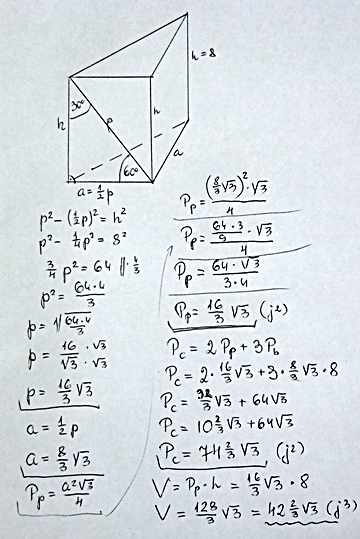 h = 8
30°
h
p
h
a
60°
a = 1/2 p
p² - (1/2 p)² = h²
p² - 1/4 p² = 8²
3/4 p² = 64 ||· 4/3
p² = 64·4/3
p = √(64·4/3)
p = 16/√3 · √3/√3
p = 16/3 √3
a = 1/2 p
a = 8/3 √3
Pp = a²√3/4
Pp = (8/3 √3)² · √3/4
Pp = 64·3/9 · √3/4
Pp = 64·√3/3·4
Pp = 16/3 √3 (j²)
Pc = 2Pp + 3Pb
Pc = 2 · 16/3 √3 + 3 · 8/3 √3 · 8
Pc = 32/3 √3 + 64√3
Pc = 10 2/3 √3 + 64√3
Pc = 74 2/3 √3 (j²)
V = Pp · h = 16/3 √3 · 8
V = 128/3 √3 = 42 2/3 √3 (j³)